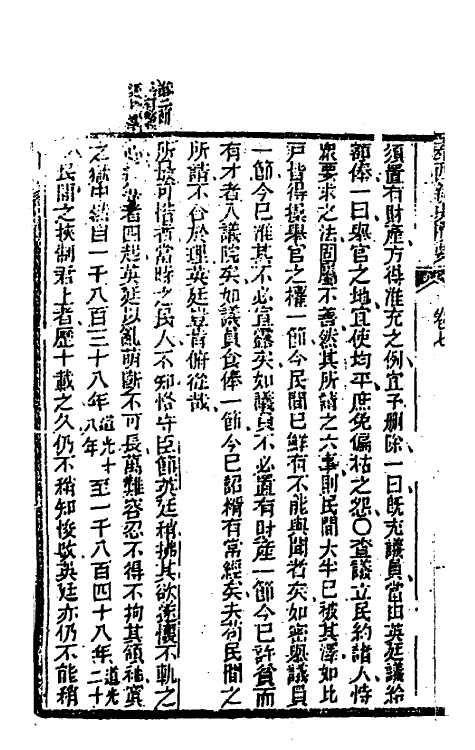 泰西新史攬要 卷七
須置有財產方得准充之例宜予刪除一曰旣充議員當由英廷議給
都俸一曰舉官之地宜使均平庶免偏枯之怨〇查議立民約諸人恃
衆要求之法固屬不善然其所請之六事則民間大半已被其澤如比
戸皆得操舉官之權一節今民間已鮮有不能與聞者矣如密舉議員
一節今已准其不必宣露矣如議員不必置有財產一節今已許貧而
有才者入議院矣如議員食俸一節今已詔糈有常經矣夫苟民間之
所請不谷於理英廷豈肯俯從哉
所最可惜者當時之民人不知恪守臣節英廷稍拂其欲羣懷不軌之
心 者四起英廷以亂萌斷不可長萬難容忍不得不拘其領袖寘
之獄中總自一千八百三十八年道光十八年至一千八百四十八年道光二十
 民間之挾制君上者歷十載之久仍不稍知悛改英廷亦仍不能稍